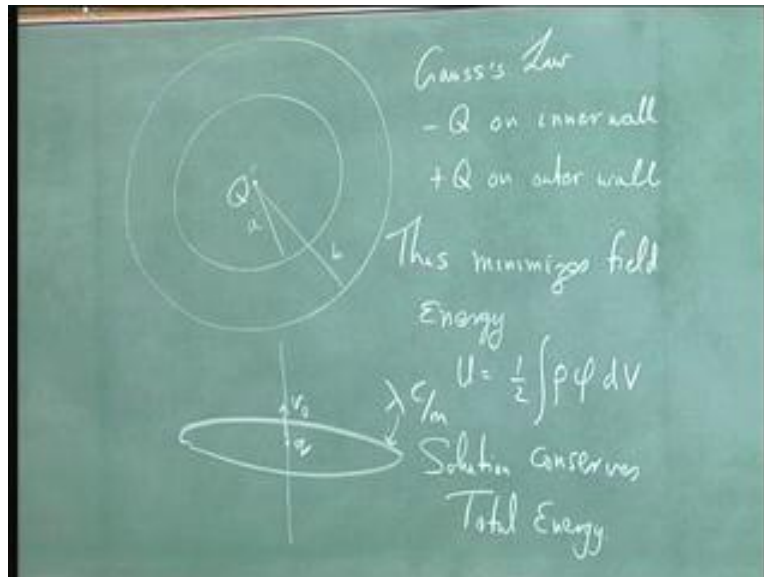 Gauss's Law
- Q on inner wall
+ Q on outer wall
Q
a
b
This minimizes field
Energy
U = ½ ∫ρφ dV
v₀
q
λ C/m
Solution conserves
Total Energy